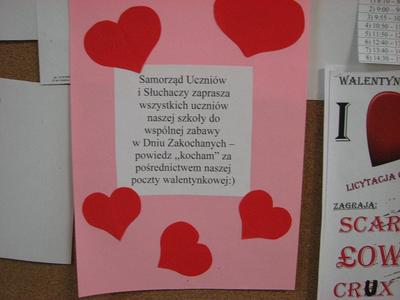 Samorząd Uczniów
i Słuchaczy zaprasza
wszystkich uczniów
naszej szkoły do
wspólnej zabawy
w Dniu Zakochanych –
powiedz ,,kocham" za
pośrednictwem naszej
poczty walentynkowej:)
WALENTYN
I
LICYTACJA
ZAGRAJĄ:
SCAR
ŁOW
CRUX